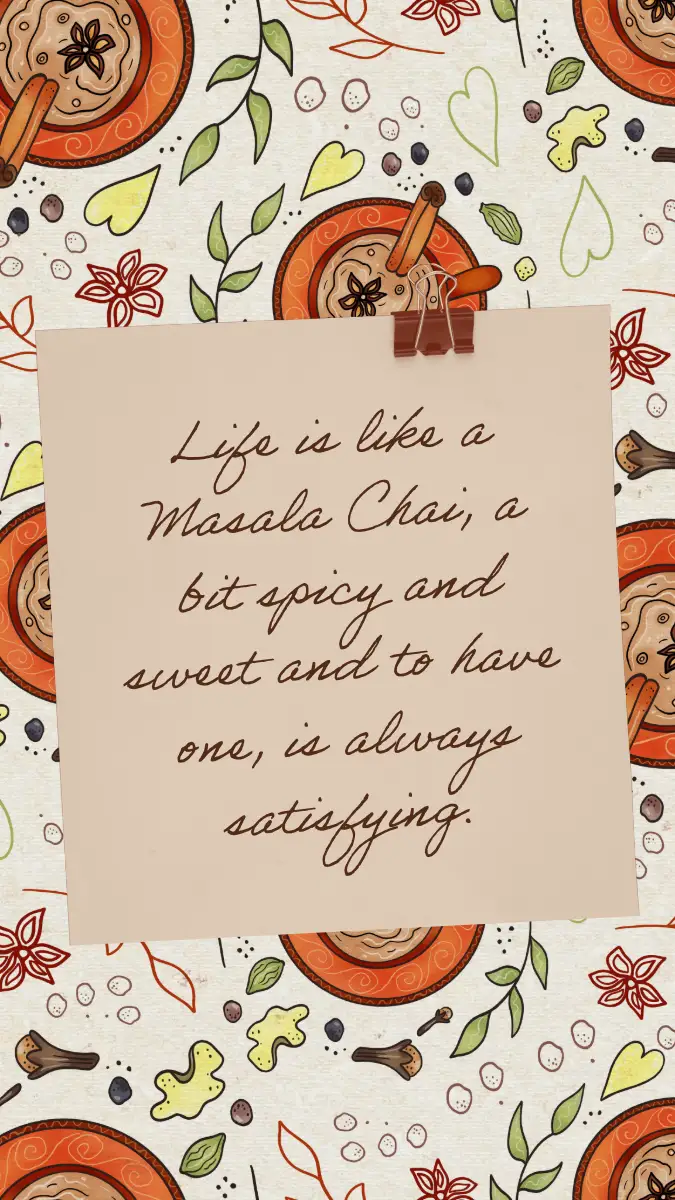 Life is like a
Masala Chai, a
bit spicy and
sweet and to have
one, is always
satisfying.